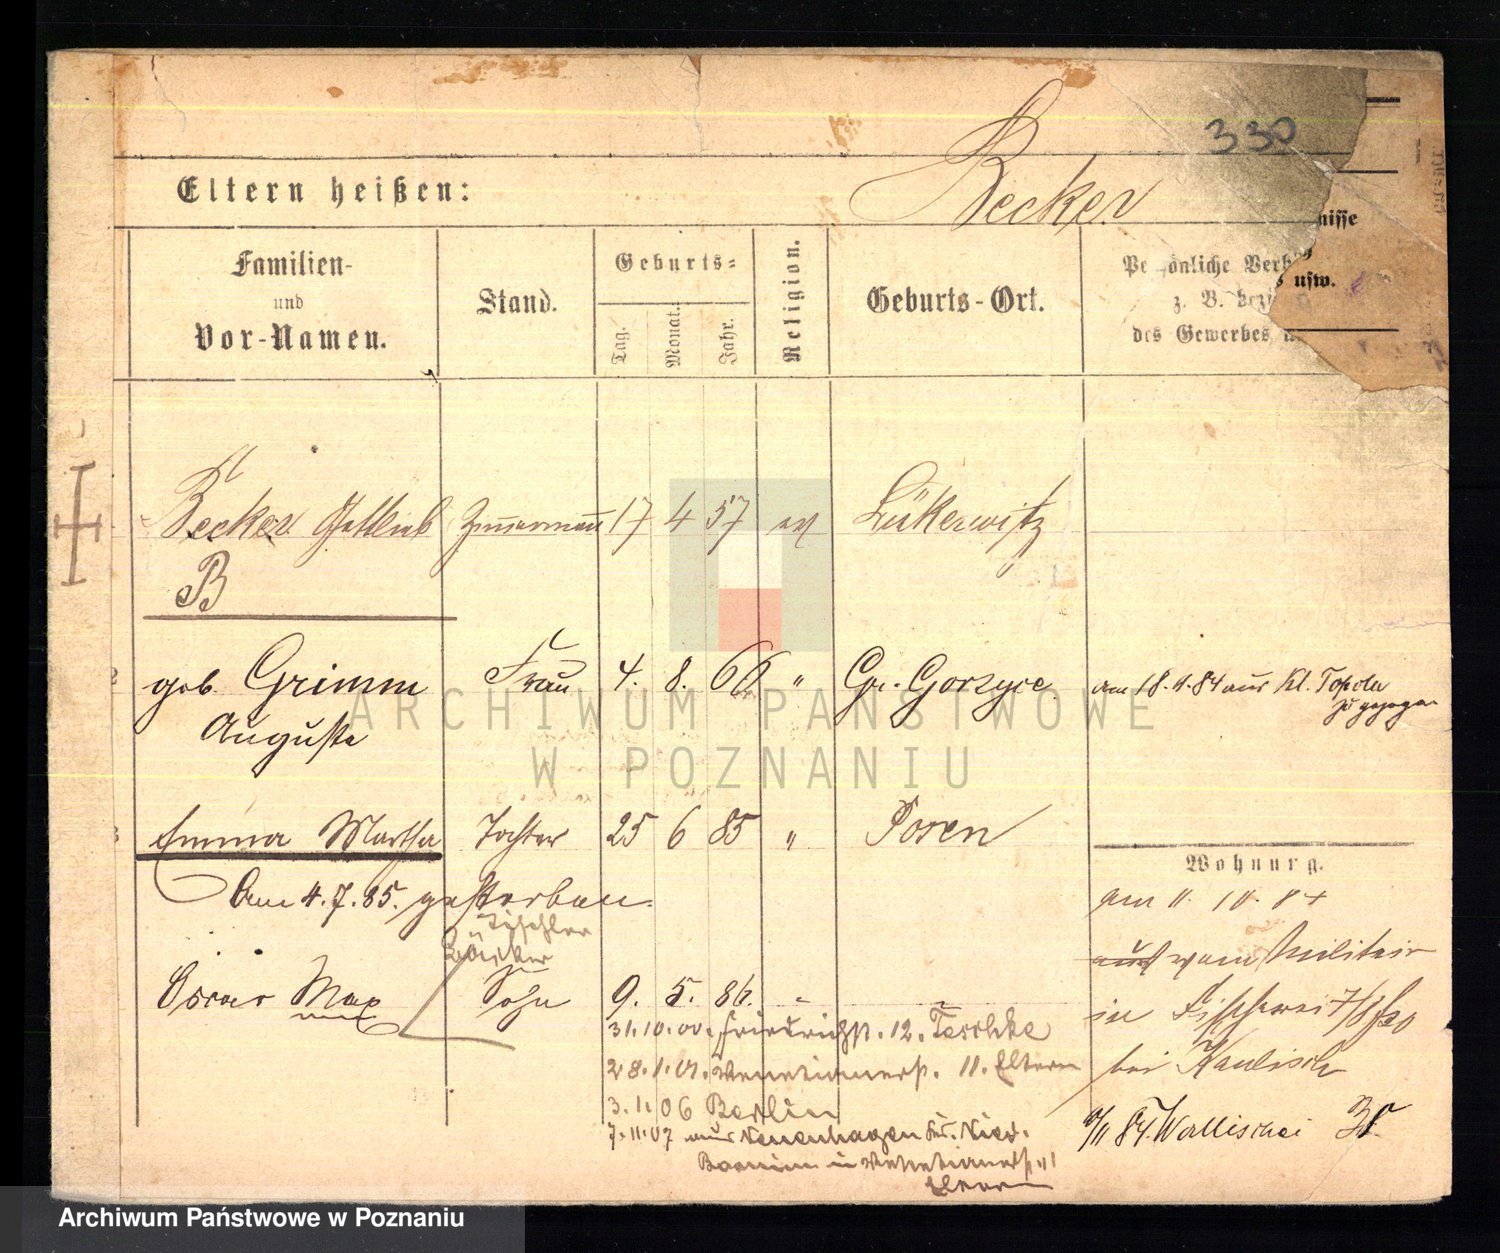 330
Eltern heißen:
Becker
Familien-
und
Vor-Namen.
Stand.
Geburts-
Tag.
Monat.
Jahr.
Religion.
Geburts-Ort.
nisse
usw.
des Gewerbes
Becker Gottlieb Zimmermann 17 4 57 ev Lükerwitz
B
geb. Grimm Frau 4. 8. 66 " Gr. Gorzyce am 18.4.84 aus Kl. Topola
Auguste
zugezogen
Emma Martha Tochter 25 6 85 " Posen
Am 4.7.85. gestorben
Wohnung.
am 11. 10. 84
Tischler
Bäcker
aus vom Militair
Oscar Max Sohn 9. 5. 86.
in Fischerei 7/
31.10.00. Friedrichst. 12. Teschke
28.1.01. Venetianerst. 11. Eltern
bei Kaulisch
3.1.06 Berlin
7.11.07 aus Neuenhagen Kr. Nied.
84. Wallischei
Barnim in Venetianerst. 11
Eltern
ARCHIWUM PAŃSTWOWE
W POZNANIU
Archiwum Państwowe w Poznaniu